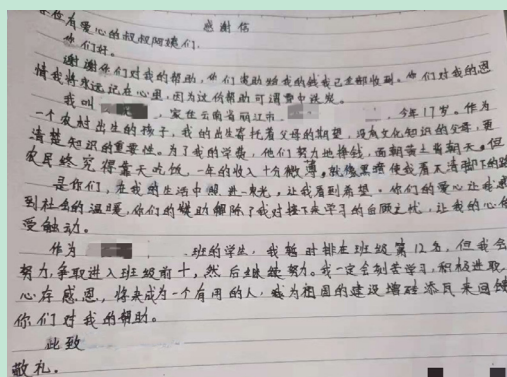 感谢信
你有爱心的叔叔阿姨们:
你们好。
谢谢你们对我的帮助,你们资助给我的钱我已全部收到。你们对我的恩
情我将永远记在心里,因为这份帮助可谓雪中送炭。
我叫 ,家住云南省丽江市 ,今年17岁。作为
一个农村出生的孩子,我的出生寄托着父母的期望,没有文化知识的父母,更
清楚知识的重要性。为了我的学费,他们努力地挣钱,面朝黄土背朝天。但
农民终究得靠天吃饭,一年的收入十分微薄,就像黑暗使我看不清脚下的路
是你们,在我的生活中照进一束光,让我看到希望。你们的爱心让我感
到社会的温暖,你们的援助解除了我对接下来学习的后顾之忧,让我的心倍
受触动。
作为 班的学生,我暂时排在班级第12名,但我会
努力,争取进入班级前十,然后继续努力。我一定会刻苦学习,积极进取
心存感恩,将来成为一个有用的人,为祖国的建设增砖添瓦来回馈
你们对我的帮助。
此致
敬礼。